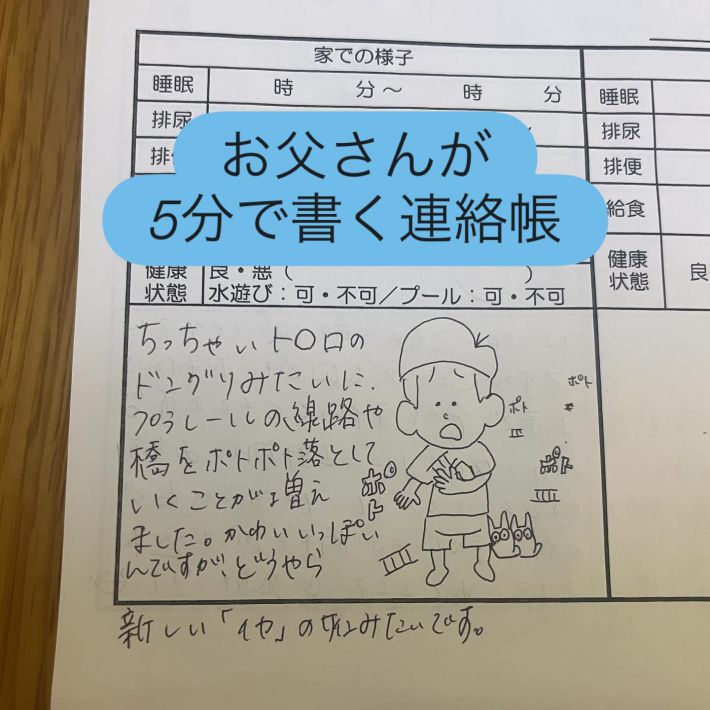 家での様子
睡眠 時 分～ 時 分
睡眠
排尿
排尿
お父さんが
5分で書く連絡帳
排便
給食
健康状態 良・悪（ ）
水遊び：可・不可／プール：可・不可
健康状態 良
ちっちゃいト〇ロの
ドングリみたいに、
プラレールの線路や
橋をポトポト落として
いくことが増え
ました。かわいいっぽい
んですが、どうやら
新しい「イヤ」の形みたいです。
ポト
ポト
ポト
ポト